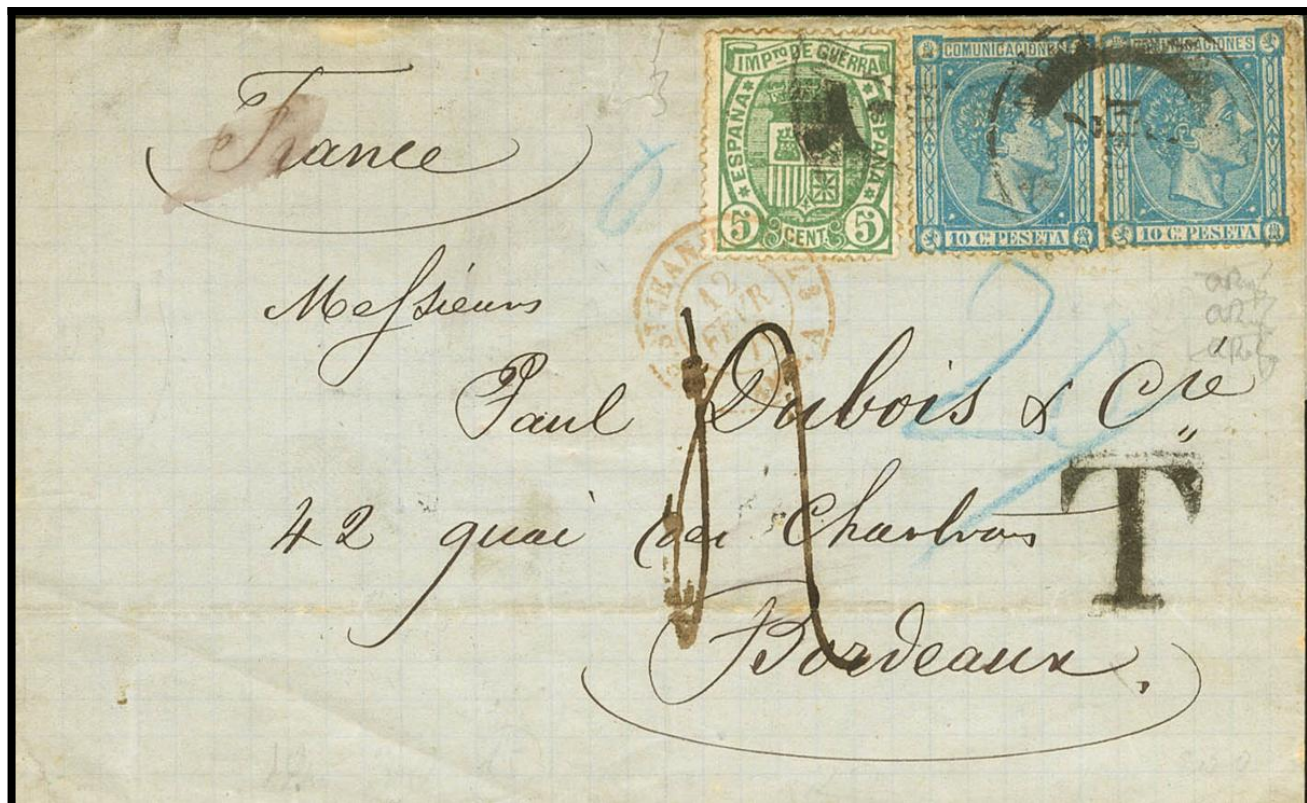 France
IMPTO DE GUERRA
ESPAÑA
ESPAÑA
5 CENT. 5
COMUNICACIONES
10 C. PESETA
COMUNICACIONES
10 C. PESETA
ST JEAN
12
FEVR
Messieurs
Paul Dubois & Cie
42 quai des Chartrons
T
Bordeaux,